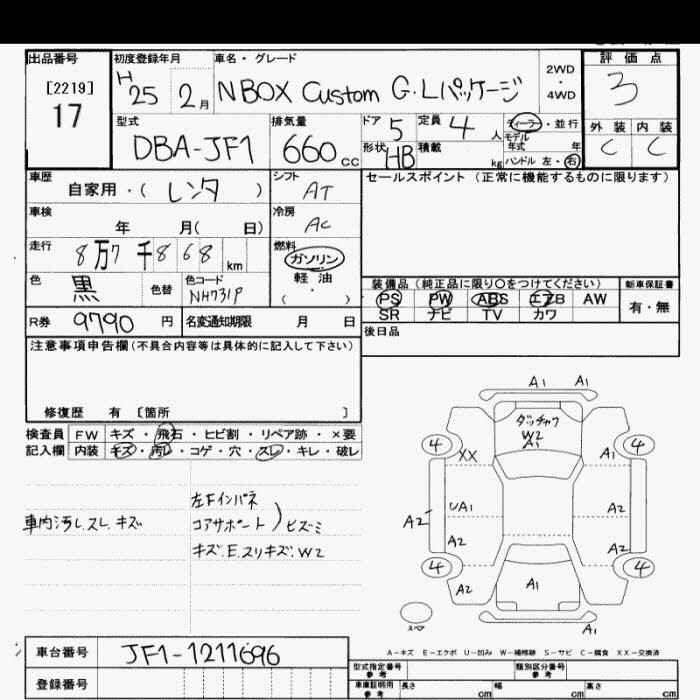 出品番号 初度登録年月 車名・グレード 評価点
[2219]
17
H25 2月 NBOX Custom G・Lパッケージ 2WD・4WD 3
型式 排気量 ドア 定員 ディーラー・並行 外装 内装
DBA-JF1 660cc 5 4人 モデル年式 年 C C
形状 HB 積載 kg ハンドル 左・右
車歴 シフト セールスポイント(正常に機能するものに限ります)
自家用・(レンタ) AT
車検 年 月(日) 冷房 AC
走行 8万7千868km 燃料 ガソリン
軽油
(・)
色 黒 色替 色コード NH731P
装備品(純正品に限り〇をつけてください) 新車保証書
PS PW ABS エアB AW 有・無
SR ナビ TV カワ
R券 9790円 名変通知期限 月 日
後日品
注意事項申告欄(不具合内容等は具体的に記入して下さい)
修復歴 有 [箇所 ]
検査員 FW キズ・飛石・ヒビ割・リペア跡・×要
記入欄 内装 キズ・汚レ・コゲ・穴・スレ・キレ・破レ
車内汚し.スレ.キズ
左Fインパネ
コアサポート)ヒズミ
キズ.E.スリキズ.W2
A1 A1
ダッチャク
W2
A1
4 4
XX A1
A2 UA1 A2
A2 A2
4 4
A2 A1
A1
スペア
A-キズ E-エクボ U-凹み W-補修跡 S-サビ C-腐食 XX-交換済
車台番号 JF1-1211696
登録番号
型式指定番号 参考 類別区分番号 参考
車庫証明用 参考 長さ cm 幅 cm 高さ cm